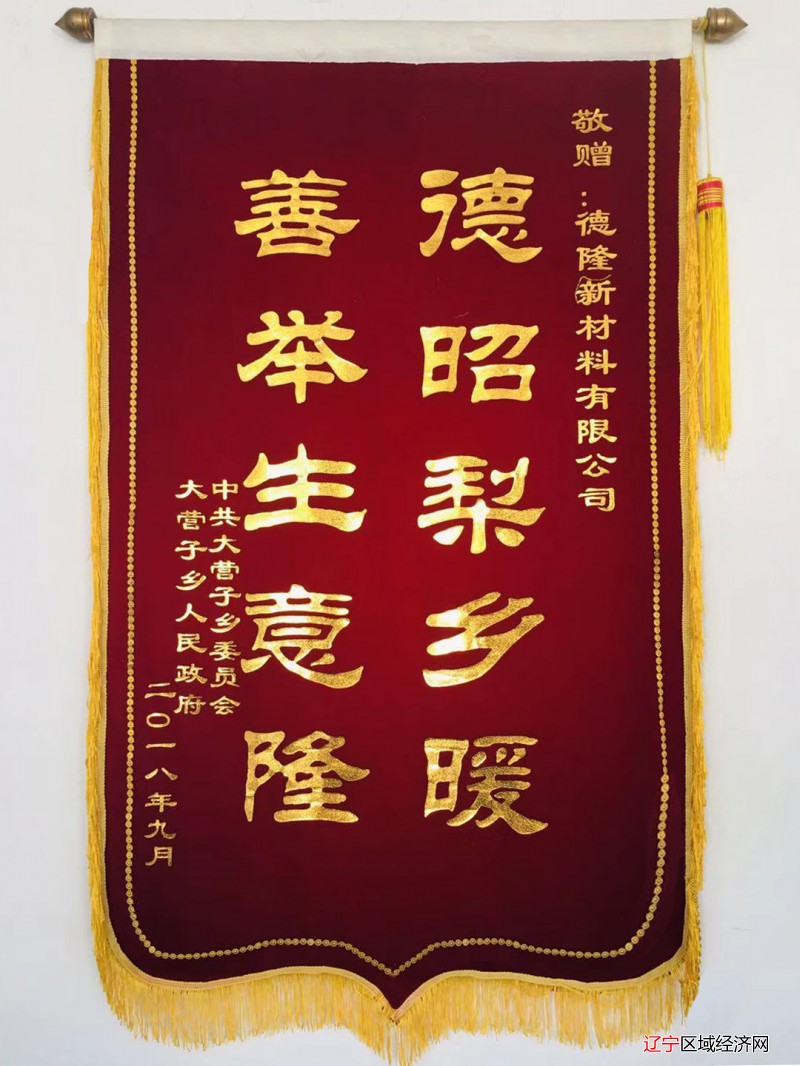 敬赠：德隆新材料有限公司
德昭梨乡暖
善举生意隆
中共大营子乡委员会
大营子乡人民政府
二〇一八年九月
辽宁区域经济网